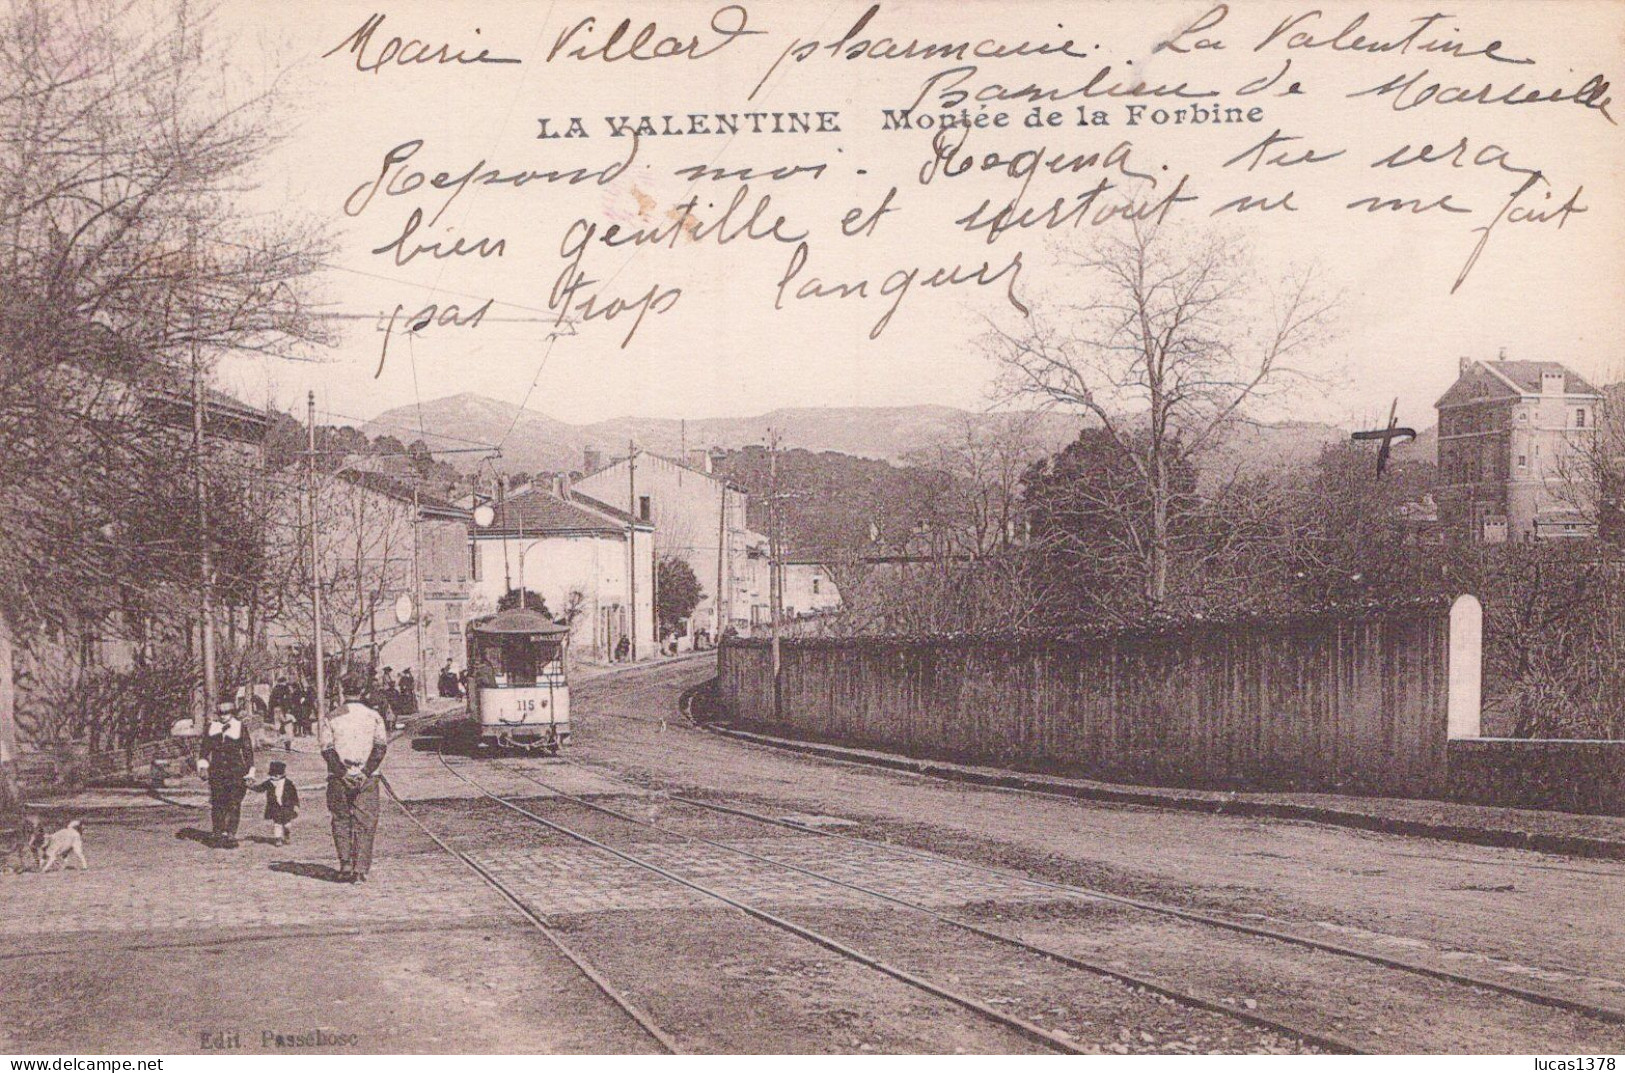 Marie Villard pharmacie. La Valentine
Banlieu de Marseille
LA VALENTINE Montée de la Forbine
Repond moi. Regina. tu sera
bien gentille et surtout ne me fait
pas trop langurr
115
Edit. Passebosc
lucas1378